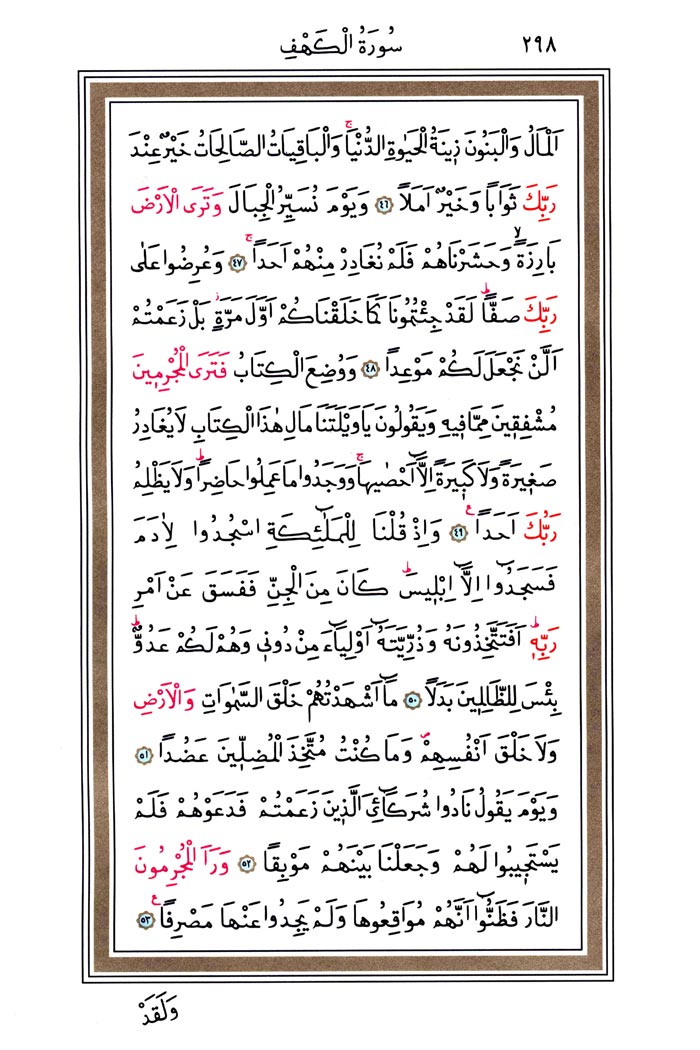 ٢٩٨ سُورَةُ الْكَهْفِ
اَلْمَالُ وَالْبَنُونَ ز۪ينَةُ الْحَيٰوةِ الدُّنْيَاۚ وَالْبَاقِيَاتُ الصَّالِحَاتُ خَيْرٌ عِنْدَ
رَبِّكَ ثَوَاباً وَخَيْرٌ اَمَلاً ﴿٤٦﴾ وَيَوْمَ نُسَيِّرُ الْجِبَالَ وَتَرَى الْاَرْضَ
بَارِزَةًۙ وَحَشَرْنَاهُمْ فَلَمْ نُغَادِرْ مِنْهُمْ اَحَداًۚ ﴿٤٧﴾ وَعُرِضُوا عَلٰى
رَبِّكَ صَفاًّۜ لَقَدْ جِئْتُمُونَا كَمَا خَلَقْنَاكُمْ اَوَّلَ مَرَّةٍۘ بَلْ زَعَمْتُمْ
اَلَّنْ نَجْعَلَ لَكُمْ مَوْعِداً ﴿٤٨﴾ وَوُضِعَ الْكِتَابُ فَتَرَى الْمُجْرِم۪ينَ
مُشْفِق۪ينَ مِمَّا ف۪يهِ وَيَقُولُونَ يَاوَيْلَتَنَا مَالِ هٰذَا الْكِتَابِ لَا يُغَادِرُ
صَغ۪يرَةً وَلَا كَب۪يرَةً اِلَّٓا اَحْصٰيهَاۚ وَوَجَدُوا مَا عَمِلُوا حَاضِراًۜ وَلَا يَظْلِمُ
رَبُّكَ اَحَداً۟ ﴿٤٩﴾ وَاِذْ قُلْنَا لِلْمَلٰٓئِكَةِ اسْجُدُوا لِاٰدَمَ
فَسَجَدُٓوا اِلَّٓا اِبْل۪يسَۜ كَانَ مِنَ الْجِنِّ فَفَسَقَ عَنْ اَمْرِ
رَبِّه۪ۜ اَفَتَتَّخِذُونَهُ وَذُرِّيَّتَهُٓ اَوْلِيَٓاءَ مِنْ دُون۪ي وَهُمْ لَكُمْ عَدُوٌّۜ
بِئْسَ لِلظَّالِم۪ينَ بَدَلاً ﴿٥٠﴾ مَٓا اَشْهَدْتُهُمْ خَلْقَ السَّمٰوَاتِ وَالْاَرْضِ
وَلَا خَلْقَ اَنْفُسِهِمْۖ وَمَا كُنْتُ مُتَّخِذَ الْمُضِلّ۪ينَ عَضُداً ﴿٥١﴾
وَيَوْمَ يَقُولُ نَادُوا شُرَكَٓائِيَ الَّذ۪ينَ زَعَمْتُمْ فَدَعَوْهُمْ فَلَمْ
يَسْتَج۪يبُوا لَهُمْ وَجَعَلْنَا بَيْنَهُمْ مَوْبِقاً ﴿٥٢﴾ وَرَاَ الْمُجْرِمُونَ
النَّارَ فَظَنُّٓوا اَنَّهُمْ مُوَاقِعُوهَا وَلَمْ يَجِدُوا عَنْهَا مَصْرِفاً۟ ﴿٥٣﴾
وَلَقَدْ